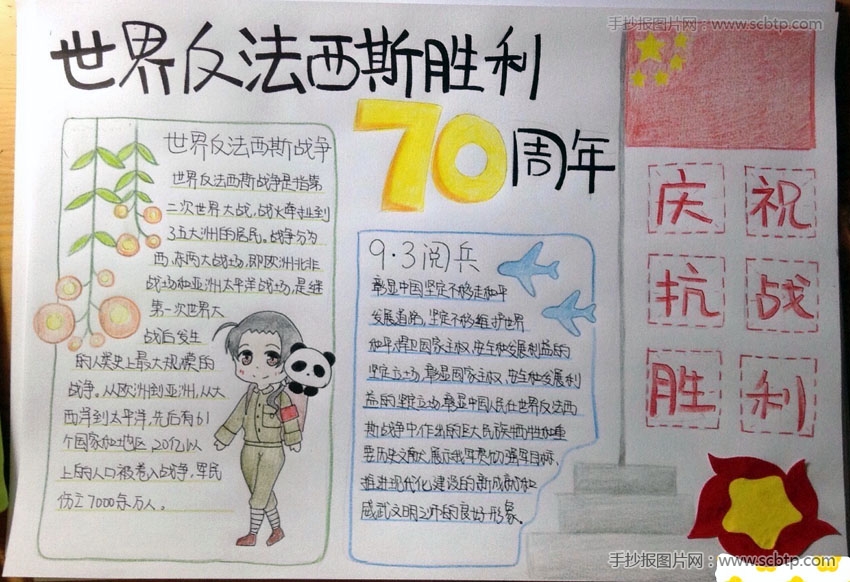 手抄报图片网：www.scbtp.com
世界反法西斯胜利
70周年
世界反法西斯战争
世界反法西斯战争是指第
二次世界大战,战火牵扯到
3五大洲的居民。战争分为
西、东两大战场,即欧洲北非
战场和亚洲太平洋战场,是继
第一次世界大
战后发生
的人类史上最大规模的
战争。从欧洲到亚洲,从大
西洋到太平洋,先后有61
个国家和地区、20亿以
上的人口被卷入战争,军民
伤亡7000余万人。
9·3阅兵
彰显中国坚定不移走和平
发展道路,坚定不移维护世界
和平,捍卫国家主权,安全和发展利益的
坚定立场,彰显国家主权,安全和发展利
益的坚定立场,彰显中国人民在世界反法西
斯战争中作出的巨大民族牺牲和重
要历史贡献,展示我军努力强军目标、
推进现代化建设的新成就和
威武文明之师的良好形象。
庆祝
抗战
胜利
手抄报图片网：www.scbtp.com